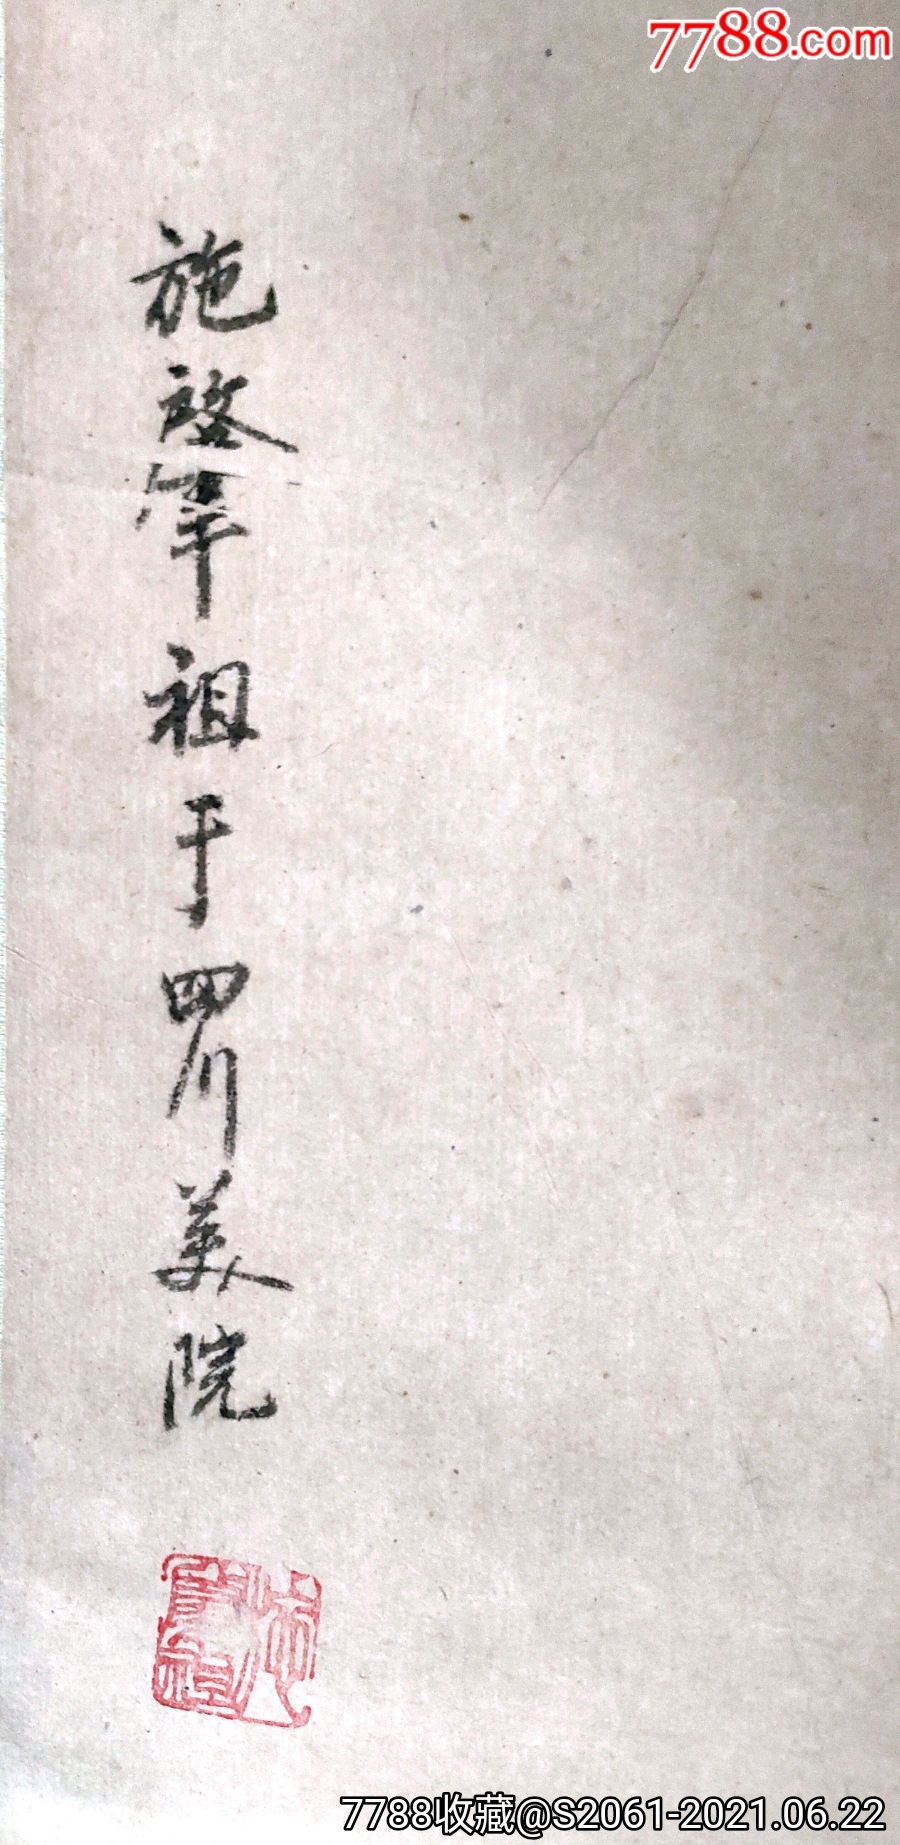 7788.com
施肇祖于四川美院
施肇祖
7788收藏@S2061-2021.06.22